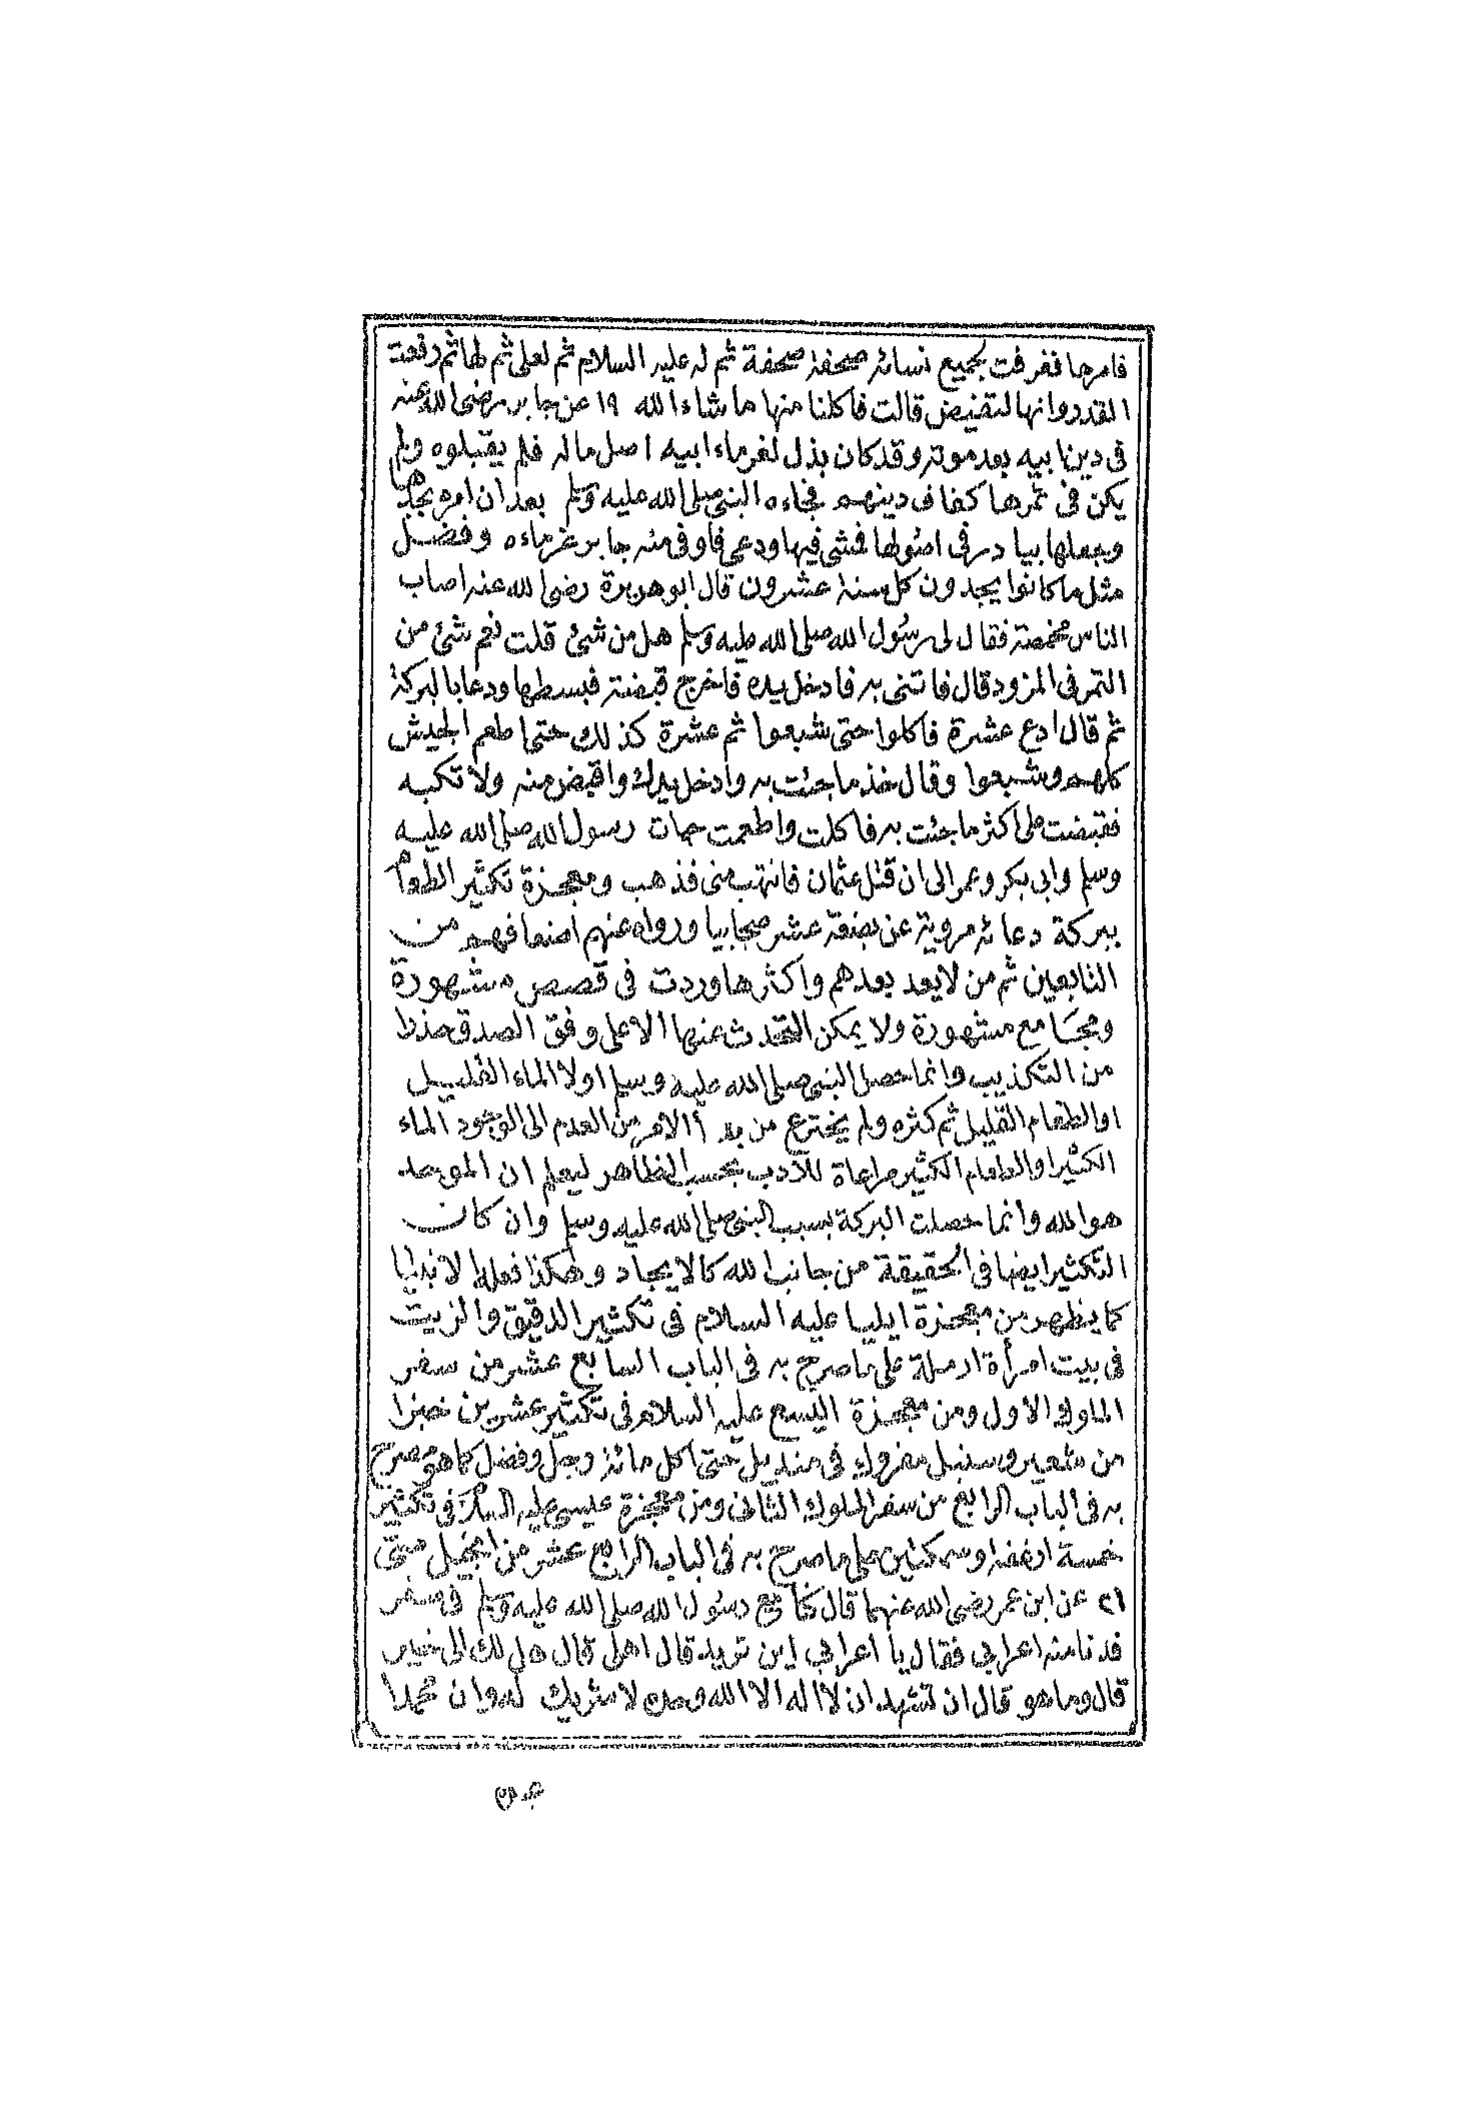 فامرها فغرفت لجميع نسائه صحفة صحفة ثم له عليه السلام ثم لعلى ثم لها ثم رفعت
القدر وانها لتفيض قالت فاكلنا منها ما شاء الله ١٩ عن جابر رضى الله عنه
فى دين ابيه بعد موته وقد كان بذل لغرماء ابيه اصل ماله فلم يقبلوه ولم
يكن فى ثمرها كفاف دينهم فجاءه النبى صلى الله عليه وسلم بعد ان امره بجدها
وجعلها بيادر فى اصولها فمشى فيها ودعى فاوفى منه جابر غرماءه وفضل
مثل ما كانوا يجدون كل سنة عشرون قال ابو هريرة رضى الله عنه اصاب
الناس مخمصة فقال لى رسول الله صلى الله عليه وسلم هل من شئ قلت نعم شئ من
التمر فى المزود قال فاتنى به فادخل يده فاخرج قبضة فبسطها ودعا بالبركة
ثم قال ادع عشرة فاكلوا حتى شبعوا ثم عشرة كذلك حتى اطعم الجيش
كلهم وشبعوا وقال خذ ما جئت به وادخل يدك واقبض منه ولا تكبه
فقبضت على اكثر ما جئت به فاكلت واطعمت حيات رسول الله صلى الله عليه
وسلم وابى بكر وعمر الى ان قتل عثمان فانتهب منى فذهب ومعجزة تكثير الطعام
ببركة دعائه مروية عن بضعة عشر صحابيا ورواه عنهم اضعافهم من
التابعين ثم من لا يعد بعدهم واكثرها وردت فى قصص مشهورة
ومجامع مشهورة ولا يمكن التحدث عنها الا على وفق الصدق حذرا
من التكذيب وانما حصل النبى صلى الله عليه وسلم اولا الماء القليل
او الطعام القليل ثم كثره ولم يخترع من بدأ الامر من العدم الى الوجود الماء
الكثير او الطعام الكثير مراعاة للادب بحسب الظاهر ليعلم ان الموجد
هو الله وانما حصلت البركة بسبب النبى صلى الله عليه وسلم وان كان
التكثير ايضا فى الحقيقة من جانب الله كالايجاد وهكذا فعله الانبيا
كما يظهر من معجزة ايليا عليه السلام فى تكثير الدقيق والزيت
فى بيت امرأة ارملة على ما صرح به فى الباب السابع عشر من سفر
الملوك الاول ومن معجزة اليسع عليه السلام فى تكثير عشرين خبزا
من شعير وسنبل مفروك فى منديل حتى اكل مائة رجل وفضل كما هو مصرح
به فى الباب الرابع من سفر الملوك الثانى ومن معجزة عيسى عليه السلام فى تكثير
خمسة ارغفة وسمكتين على ما صرح به فى الباب الرابع عشر من انجيل متى
٢١ عن ابن عمر رضى الله عنهما قال كنا مع رسول الله صلى الله عليه وسلم فى سفر
فدنا منه اعرابى فقال يا اعرابى اين تريد قال اهلى قال هل لك الى خير
قال وما هو قال ان تشهد ان لا اله الا الله وحده لا شريك له وان محمدا